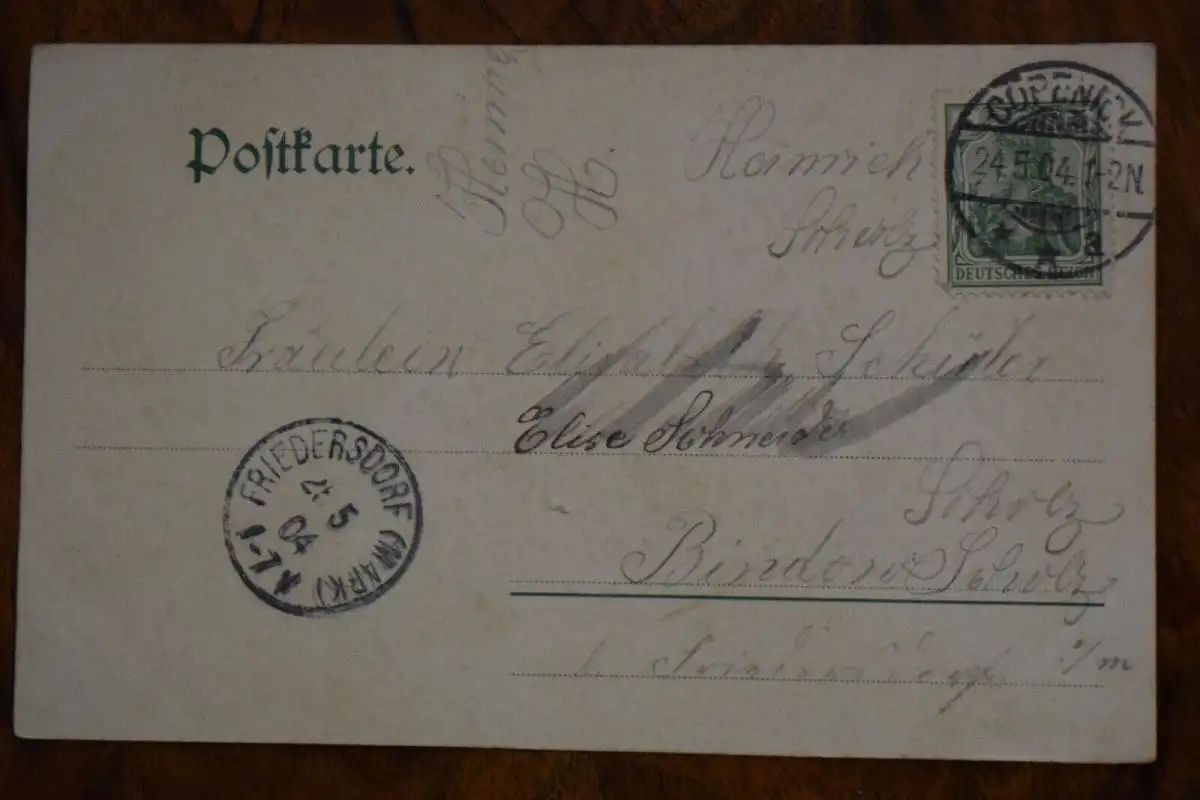 Postkarte.
Heinr
H.
Heinrich
Scholz
CÖPENICK
24.5.04. 1-2N.
* a
DEUTSCHES REICH
Fräulein Elisabeth Schüler
Elise Schneider
Scholz
Bindow Scholz
b. Friedersdorf i/m
FRIEDERSDORF (MARK)
5
04